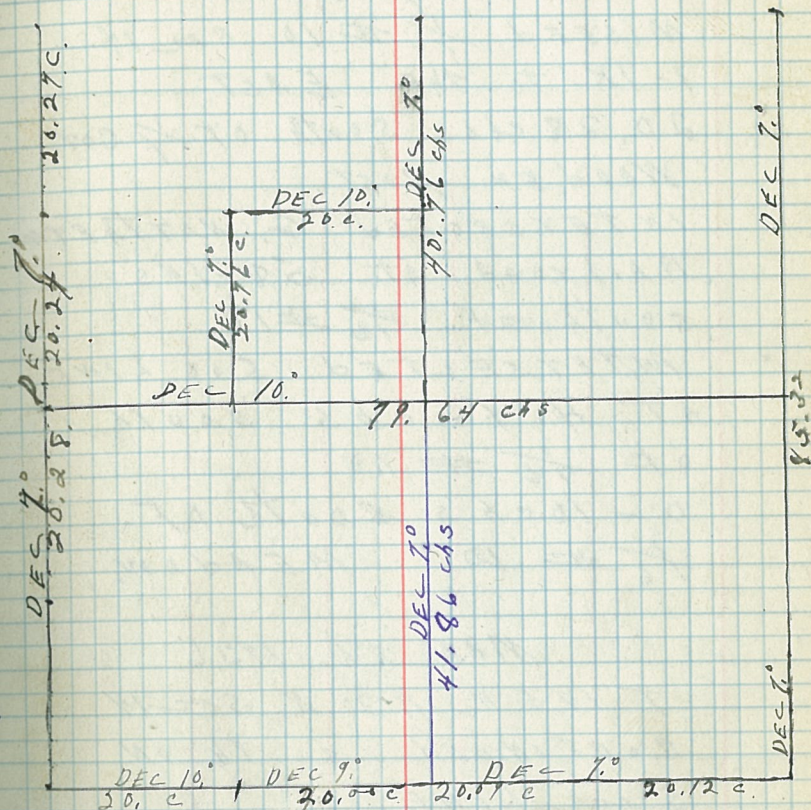 20.27 C.
DEC 7.°
20.27.
DEC 7.°
20.28.
DEC 10.°
20 C.
DEC 7.°
20.76 C.
DEC 7.°
40.76 chs
DEC 7.°
DEC 10.°
79.64 chs
85.32
DEC 7.°
41.86 chs
DEC 7.°
DEC 10.°
20. C
DEC 9.°
20.00 C
DEC 7.°
20.07 C
20.12 C.